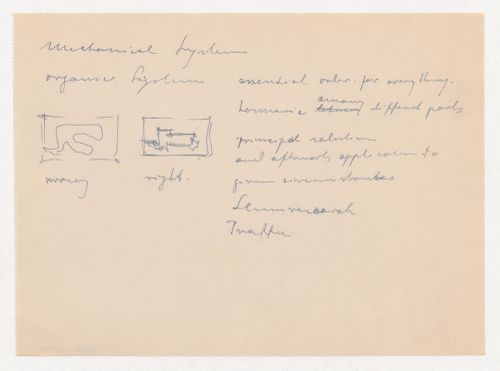 Mechanical System
organic System
essential order. for everything.
harmonie among different parts
principal solution
and afterwards application to
given circumstances
wrong
right.
Slumresearch
Traffic.